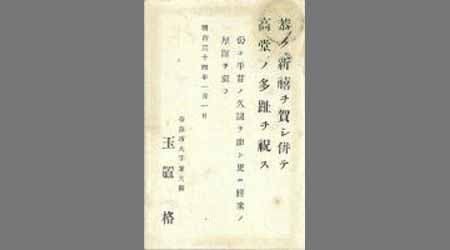 恭ク新禧ヲ賀シ併テ
高堂ノ多趾ヲ祝ス
尚ホ平昔ノ久闊ヲ謝シ更ニ将来ノ
厚誼ヲ祈ル
明治三十四年一月一日
玉置格